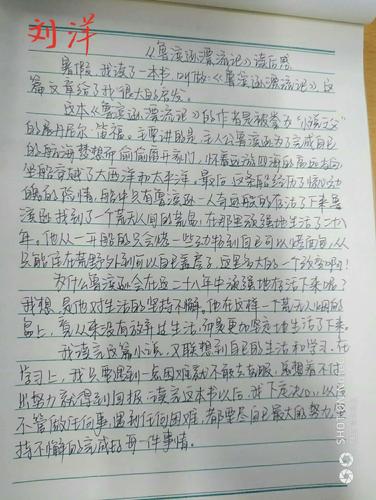 刘洋
《鲁滨逊漂流记》读后感
暑假,我读了一本书,叫做《鲁滨逊漂流记》这
篇文章给了我很大的启发。
这本《鲁滨逊漂流记》的作者是被誉为"小说之父"
的丹尼尔·笛福。主要讲的是:主人公鲁滨逊为了完成自己
的航海梦想而偷偷离开家门,怀着远游四海的高远志向
坐船穿越了大西洋和太平洋。最后,这条船经历了惊心动
魄的险情,船中只有鲁滨逊一人奇迹般的存活了下来鲁
滨逊找到了一个荒无人间的荒岛,在那里顽强地生活了二十八
年。他从一开始的只会烤一些动物到自己可以烤面包,从
只能住在荒野外到可以自己盖房子,这是多大的一个改变啊!
为什么鲁滨逊会在这二十八年中顽强地存活下来呢?
我想,是他对生活的坚持不懈。他在这样一个荒无人烟的
岛上,看从来没有放弃过生活,而是更加坚定地生活了下来。
我读完这篇小说,又联想到自己的生活和学习,在
学习上,我只要遇到一点困难就不敢去克服,总想着不付
出努力就得到回报,读完这本书以后,我下定决心,以后
不管做任何事,遇到任何困难,都要尽自己最大的努力,坚
持不懈的完成好每一件事情。
SHOT ON